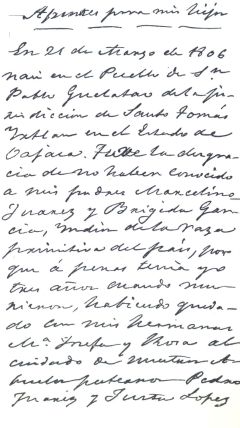 Apuntes para mis hijos
En 21 de Marzo de 1806
naci en el Pueblo de Sn.
Pablo Guelatao de la ju-
risdiccion de Santo Tomás
Ixtlan en el Estado de
Oajaca. Tuve la desgra-
cia de no haber conocido
a mis padres Marcelino
Juarez y Brigida Gar-
cia, indios de la raza
primitiva del pais, por
que á penas tenia yo
tres años cuando mu-
rieron, habiendo queda-
do con mis hermanas
Ma. Josefa y Rosa al
cuidado de nuestros A-
buelos paternos Pedro
Juarez y Justa Lopez